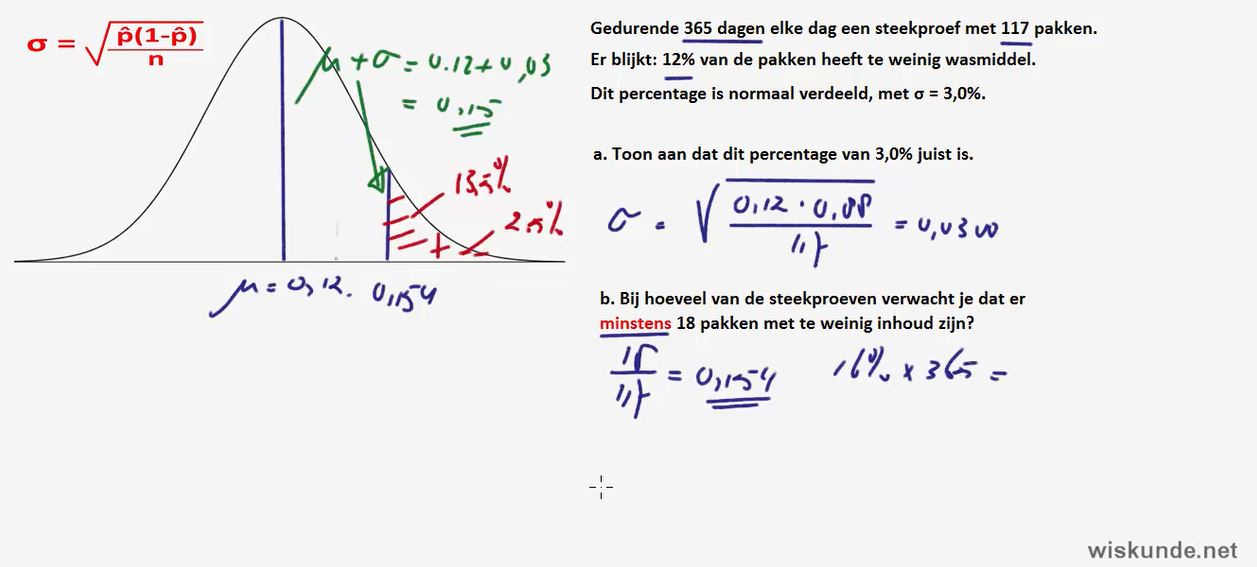 σ = √ p̂(1-p̂) / n
μ + σ = 0.12 + 0,03
= 0,15
13,5%
+ 2,5%
μ = 0,12. 0,154
Gedurende 365 dagen elke dag een steekproef met 117 pakken.
Er blijkt: 12% van de pakken heeft te weinig wasmiddel.
Dit percentage is normaal verdeeld, met σ = 3,0%.
a. Toon aan dat dit percentage van 3,0% juist is.
σ = √ 0,12 · 0,88 / 117 = 0,0300
b. Bij hoeveel van de steekproeven verwacht je dat er
minstens 18 pakken met te weinig inhoud zijn?
18 / 117 = 0,154 16% × 365 =
wiskunde.net